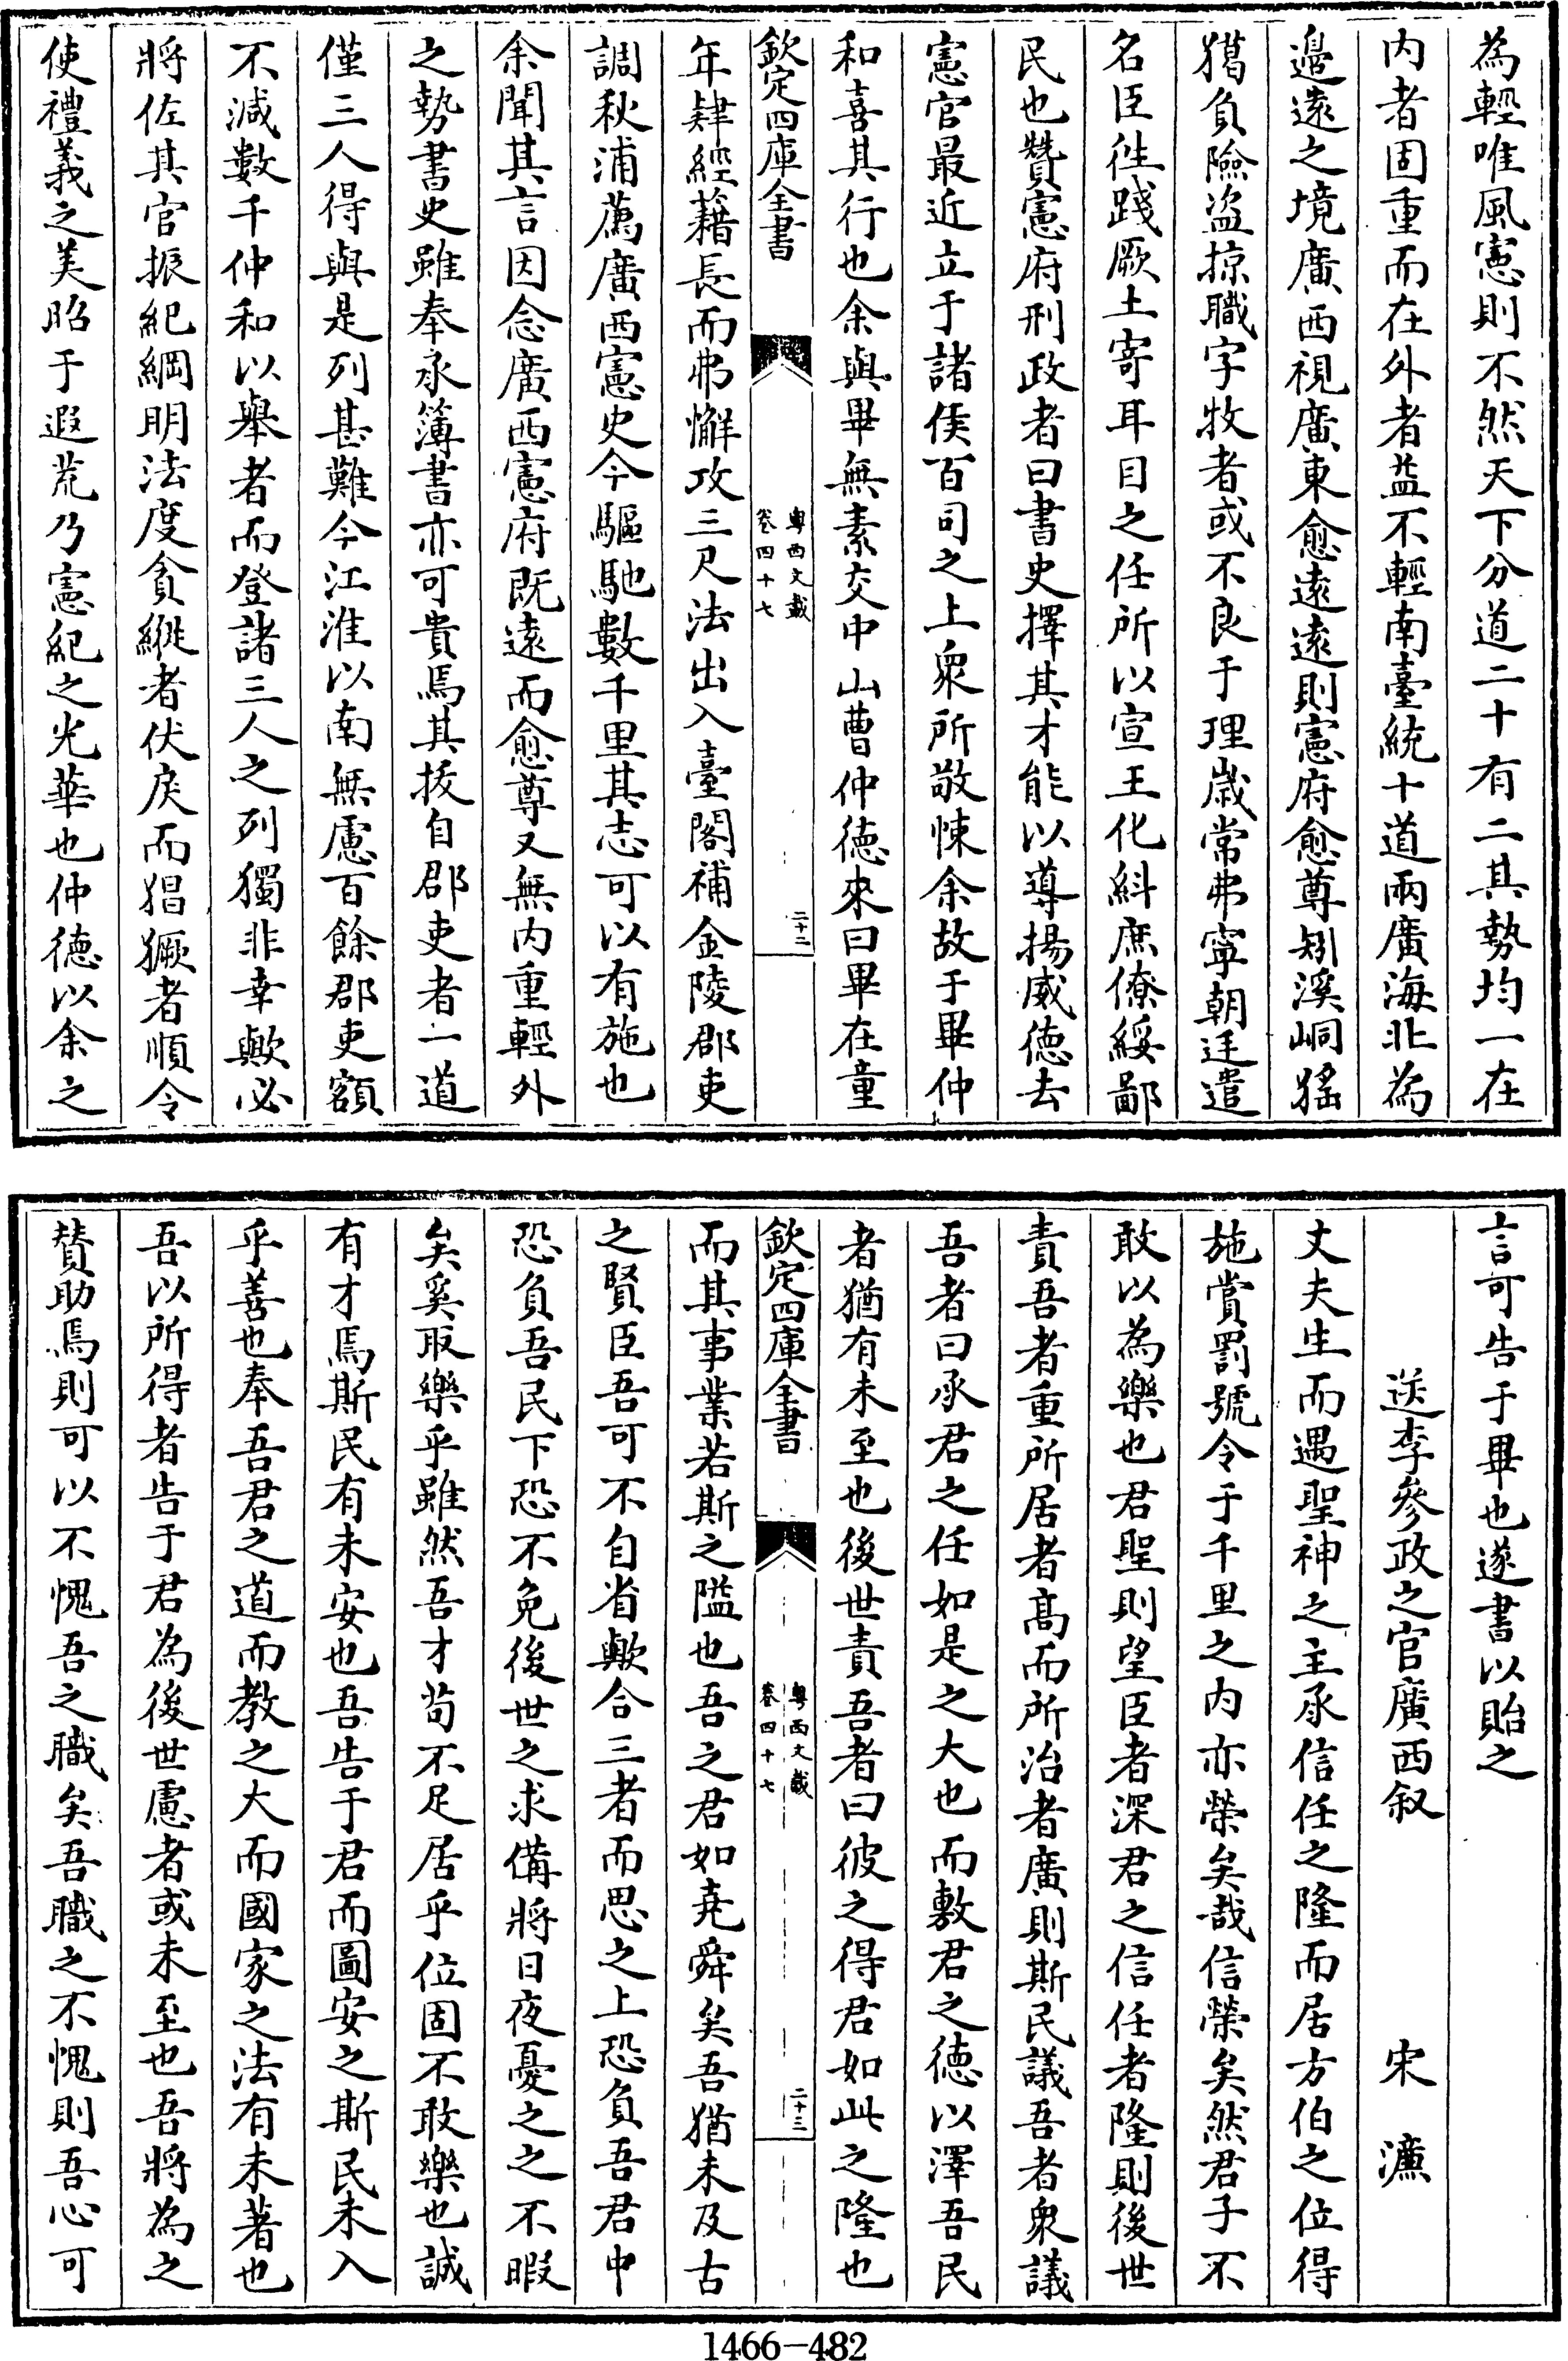 為輕唯風憲則不然天下分道二十有二其勢均一在
内者固重而在外者益不輕南臺統十道兩廣海北為
邉逺之境廣西視廣東愈逺逺則憲府愈尊矧溪峒猺
獦負險盗掠職字牧者或不良于理嵗常弗寧朝廷遣
名臣徃踐厥土寄耳目之任所以宣王化糾庶僚綏鄙
民也贊憲府刑政者曰書史擇其才能以導揚威徳去
憲官最近立于諸侯百司之上衆所敬悚余故于畢仲
和喜其行也余與畢無素交中山曹仲徳來曰畢在童
欽定四庫全書
粤西文載
卷四十七
二十二
年肄經藉長而弗懈攻三尺法出入臺閣補金陵郡吏
調秋浦薦廣西憲史今驅馳數千里其志可以有施也
余聞其言因念廣西憲府既逺而愈尊又無内重輕外
之勢書史雖奉承簿書亦可貴焉其㧞自郡吏者一道
僅三人得與是列甚難今江淮以南無慮百餘郡吏額
不減數千仲和以舉者而登諸三人之列獨非幸歟必
將佐其官振紀綱明法度貪縱者伏戾而猖獗者順令
使禮義之美昭于遐荒乃憲紀之光華也仲徳以余之
言可告于畢也遂書以貽之
送李參政之官廣西叙
宋濓
丈夫生而遇聖神之主承信任之隆而居方伯之位得
施賞罰號令于千里之内亦榮矣哉信榮矣然君子不
敢以為樂也君聖則望臣者深君之信任者隆則後世
責吾者重所居者髙而所治者廣則斯民議吾者衆議
吾者曰承君之任如是之大也而敷君之徳以澤吾民
者猶有未至也後世責吾者曰彼之得君如此之隆也
欽定四庫全書
粤西文載
卷四十七
二十三
而其事業若斯之隘也吾之君如堯舜矣吾猶未及古
之賢臣吾可不自省歟合三者而思之上恐負吾君中
恐負吾民下恐不免後世之求備將日夜憂之之不暇
矣奚取樂乎雖然吾才茍不足居乎位固不敢樂也誠
有才焉斯民有未安也吾告于君而圖安之斯民未入
乎善也奉吾君之道而教之大而國家之法有未著也
吾以所得者告于君為後世慮者或未至也吾將為之
賛助焉則可以不愧吾之職矣吾職之不愧則吾心可
1466-482